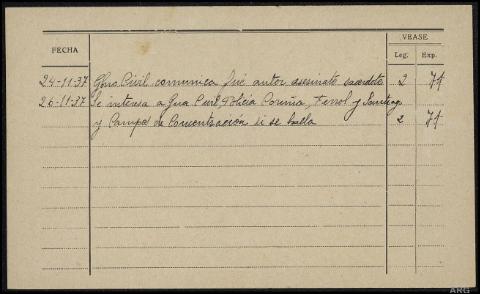 VEASE
FECHA Leg. Exp.
24-11-37 Gbno Civil comunica fué autor asesinato sacerdote 2 74
26-11-37 Se interesa a Gua Civil, Policia Coruña, Ferrol y Santiago
y Campos de Concentración si se halla 2 74
ARG